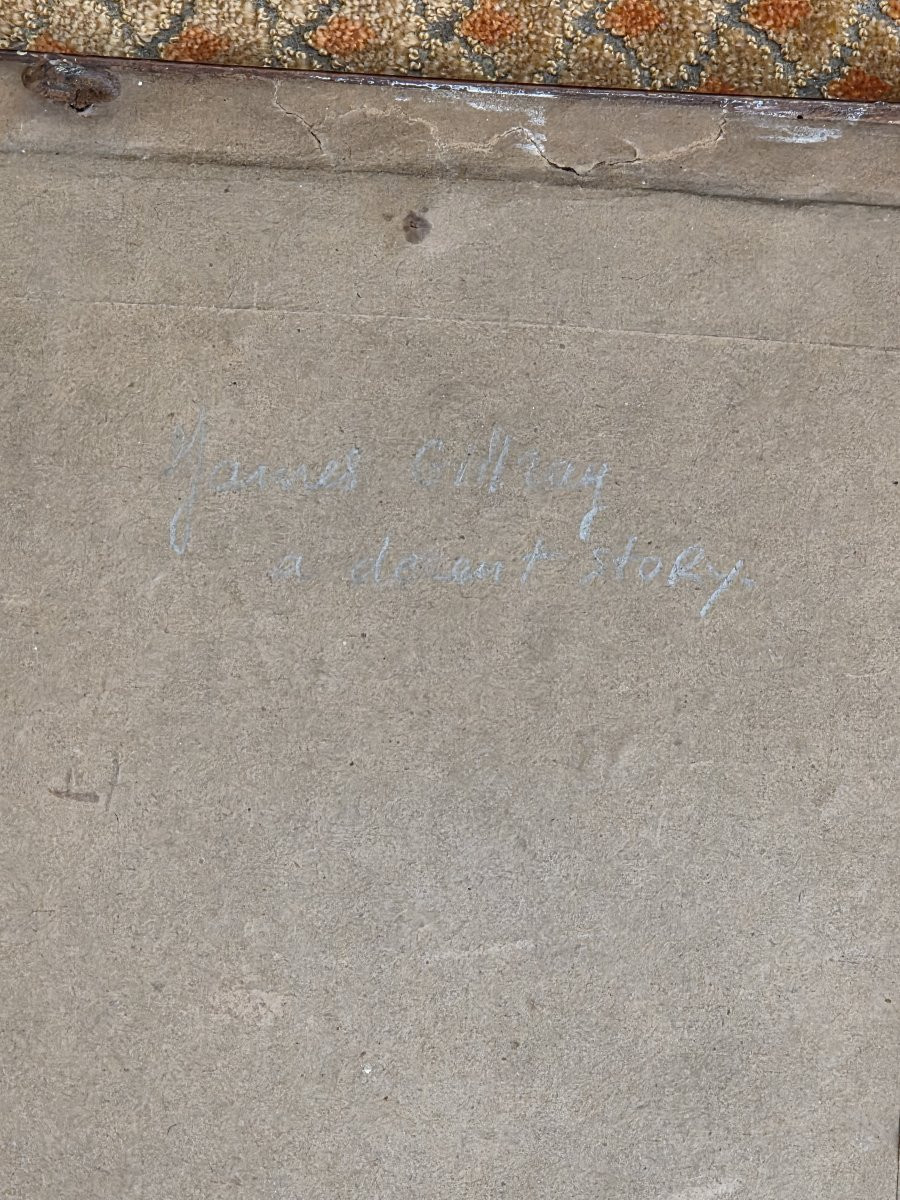 James Gillray
a decent story.